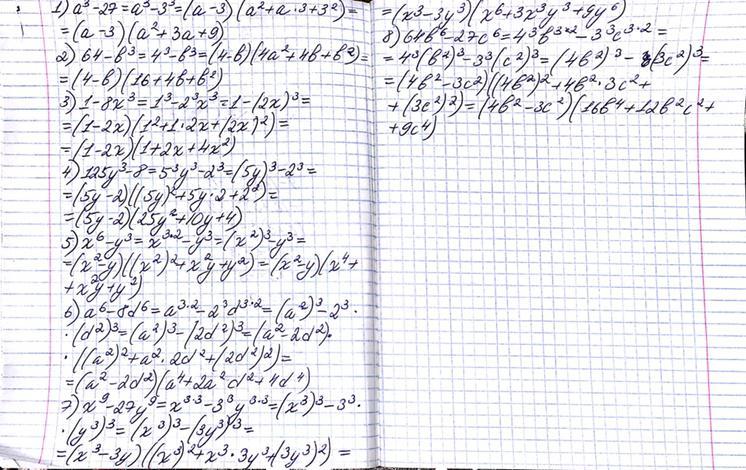 1) a³-27=a³-3³=(a-3)(a²+a·3+3²)=
=(a-3)(a²+3a+9)
2) 64-b³=4³-b³=(4-b)(4a²+4b+b²)=
=(4-b)(16+4b+b²)
3) 1-8x³=1³-2³x³=1-(2x)³=
=(1-2x)(1²+1·2x+(2x)²)=
=(1-2x)(1+2x+4x²)
4) 125y³-8=5³y³-2³=(5y)³-2³=
=(5y-2)((5y)²+5y·2+2²)=
=(5y-2)(25y²+10y+4)
5) x⁶-y³=x³·²-y³=(x²)³-y³=
=(x²-y)((x²)²+x²y+y²)=(x²-y)(x⁴+
+x²y+y²)
6) a⁶-8d⁶=a³·²-2³d³·²=(a²)³-2³·
·(d²)³=(a²)³-(2d²)³=(a²-2d²)·
·((a²)²+a²·2d²+(2d²)²)=
=(a²-2d²)(a⁴+2a²d²+4d⁴)
7) x⁹-27y⁹=x³·³-3³y³·³=(x³)³-3³·
·(y³)³=(x³)³-(3y³)³=
=(x³-3y)((x³)²+x³·3y³+(3y³)²)=
=(x³-3y³)(x⁶+3x³y³+9y⁶)
8) 64b⁶-27c⁶=4³b³·²-3³c³·²=
=4³(b²)³-3³(c²)³=(4b²)³-(3c²)³=
=(4b²-3c²)((4b²)²+4b²·3c²+
+(3c²)²)=(4b²-3c²)(16b⁴+12b²c²+
+9c⁴)